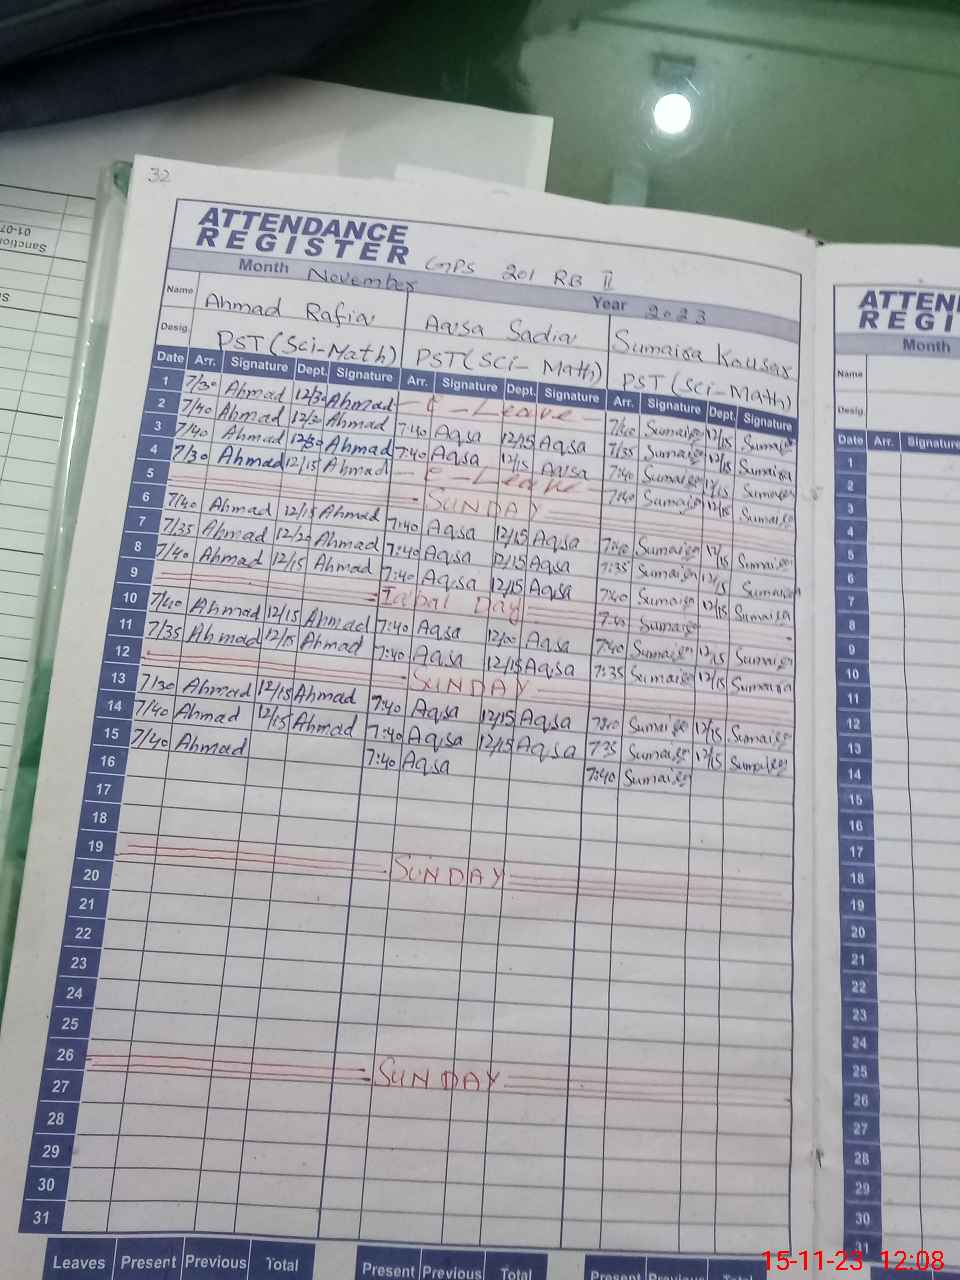 32
ATTENDANCE
REGISTER
GPS 201 RB II
Month November
Year 2023
Name Ahmad Rafia Aqsa Sadia Sumaira Kausar
Desig. PST (Sci-Math) PST (Sci-Math) PST (Sci-Math)
Date Arr. Signature Dept. Signature Arr. Signature Dept. Signature Arr. Signature Dept. Signature
1 7/30 Ahmad 12/30 Ahmad - E - Leave - 7/40 Sumaira 12/15 Sumaira
2 7/40 Ahmad 12/20 Ahmad 7:40 Aqsa 12/15 Aqsa 7/35 Sumaira 12/15 Sumaira
3 7/40 Ahmad 12/30 Ahmad 7:40 Aqsa 12/15 Aqsa 7:40 Sumaira 12/15 Sumaira
4 7/30 Ahmad 12/15 Ahmad - E - Leave - 7:40 Sumaira 12/15 Sumaira
5 SUNDAY
6 7/40 Ahmad 12/15 Ahmad 7:40 Aqsa 12/15 Aqsa 7:40 Sumaira 12/15 Sumaira
7 7/35 Ahmad 12/20 Ahmad 7:40 Aqsa 12/15 Aqsa 7:35 Sumaira 12/15 Sumaira
8 7/40 Ahmad 12/15 Ahmad 7:40 Aqsa 12/15 Aqsa 7:40 Sumaira 12/15 Sumaira
9 Iqbal Day Sumaira
10 7/40 Ahmad 12/15 Ahmad 7:40 Aqsa 12/00 Aqsa 7:40 Sumaira 12/15 Sumaira
11 7/35 Ahmad 12/15 Ahmad 7:40 Aqsa 12/15 Aqsa 7:35 Sumaira 12/15 Sumaira
12 SUNDAY
13 7/30 Ahmad 12/15 Ahmad 7:40 Aqsa 12/15 Aqsa 7:40 Sumaira 12/15 Sumaira
14 7/40 Ahmad 12/15 Ahmad 7:40 Aqsa 12/15 Aqsa 7:35 Sumaira 12/15 Sumaira
15 7/40 Ahmad 7:40 Aqsa 7:40 Sumaira
16
17
18
19 SUNDAY
20
21
22
23
24
25
26 SUNDAY
27
28
29
30
31
Leaves Present Previous Total Present Previous Total Present Previous Total
ATTEN
REGI
Month
Name
Desig.
Date Arr. Signature
1
2
3
4
5
6
7
8
9
10
11
12
13
14
15
16
17
18
19
20
21
22
23
24
25
26
27
28
29
30
31
Sanction
01-07
15-11-23 12:08